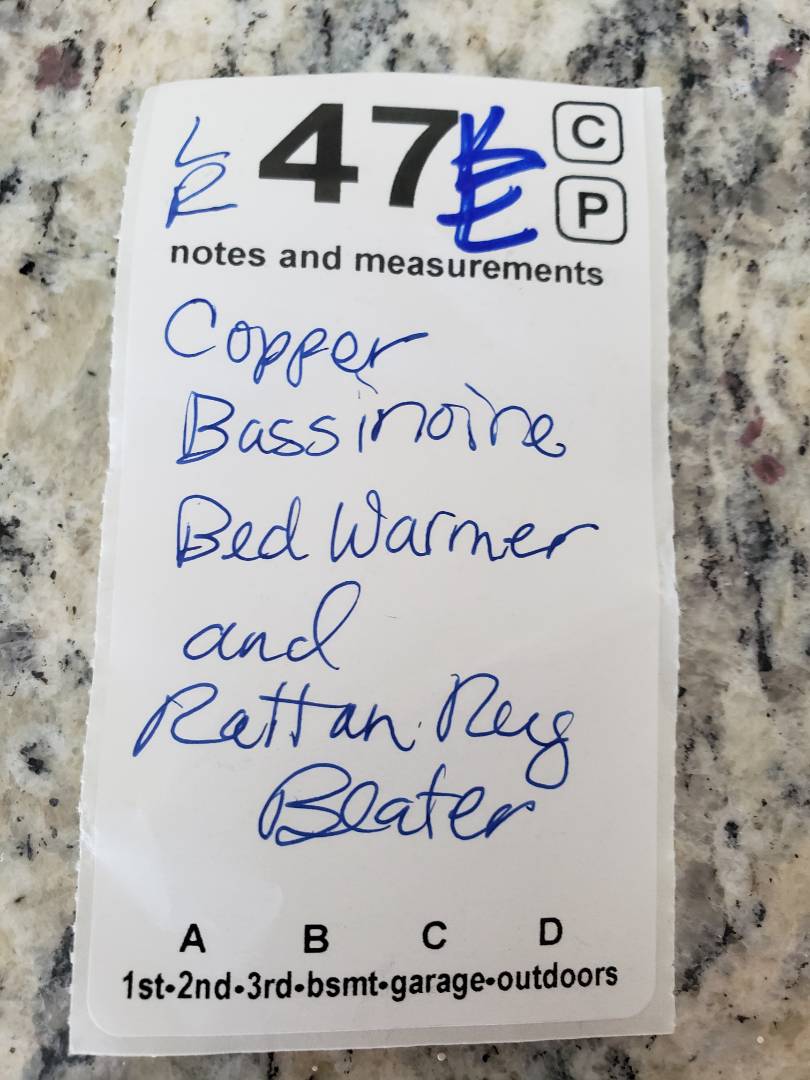 L
R
47
C
P
notes and measurements
Copper
Bassinoire
Bed Warmer
and
Rattan Rug
Beater
A B C D
1st•2nd•3rd•bsmt•garage•outdoors